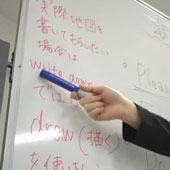 実際地図を
書いてもらいたい
場合は
write down
では
draw (描く)
を使い
Pleas